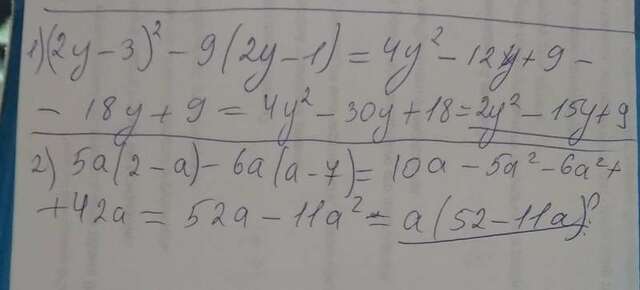 1) (2y-3)² - 9(2y-1) = 4y² - 12y + 9 -
- 18y + 9 = 4y² - 30y + 18 = 2y² - 15y + 9
2) 5a(2-a) - 6a(a-7) = 10a - 5a² - 6a² +
+ 42a = 52a - 11a² = a(52-11a)?